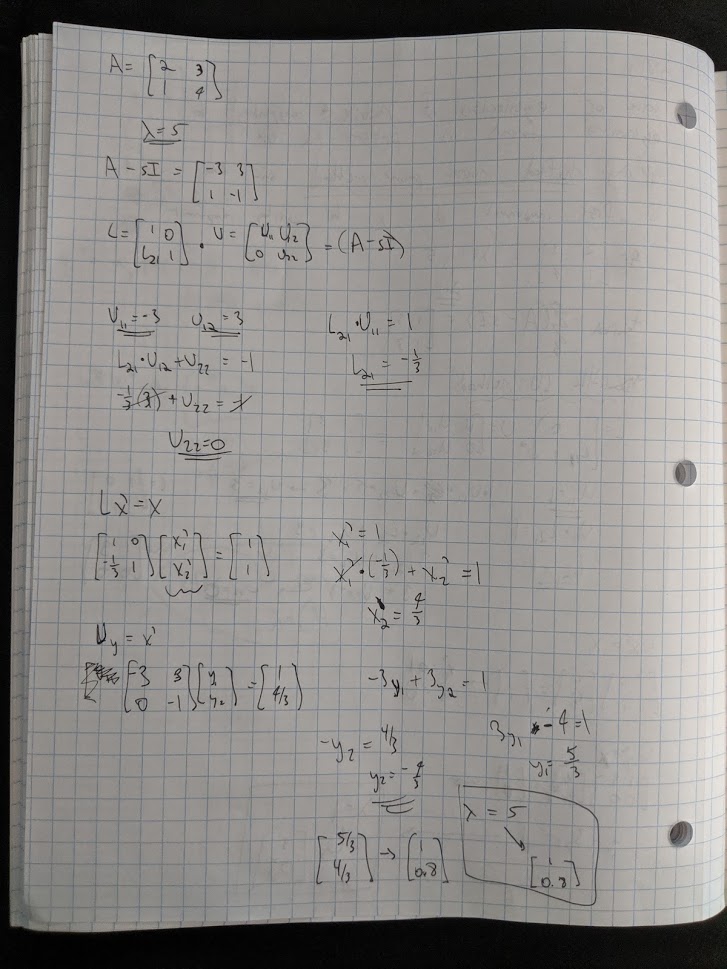 A = [2 3; 1 4]
λ = 5
A - sI = [-3 3; 1 -1]
L = [1 0; L21 1] · U = [U11 U12; 0 U22] = (A - sI)
U11 = -3 U12 = 3 L21 · U11 = 1
L21 · U12 + U22 = -1 L21 = -1/3
-1/3 (3) + U22 = -1
U22 = 0
Lx' = x
[1 0; -1/3 1] [x1'; x2'] = [1; 1] x1' = 1
x1' · (-1/3) + x2' = 1
x2' = 4/3
Uy = x'
[-3 3; 0 -1] [y1; y2] = [1; 4/3] -3y1 + 3y2 = 1
3y1 - 4 = 1
-y2 = 4/3
y1 = 5/3
y2 = -4/3
λ = 5
[5/3; 4/3] → [1; 0.8] [1; 0.8]